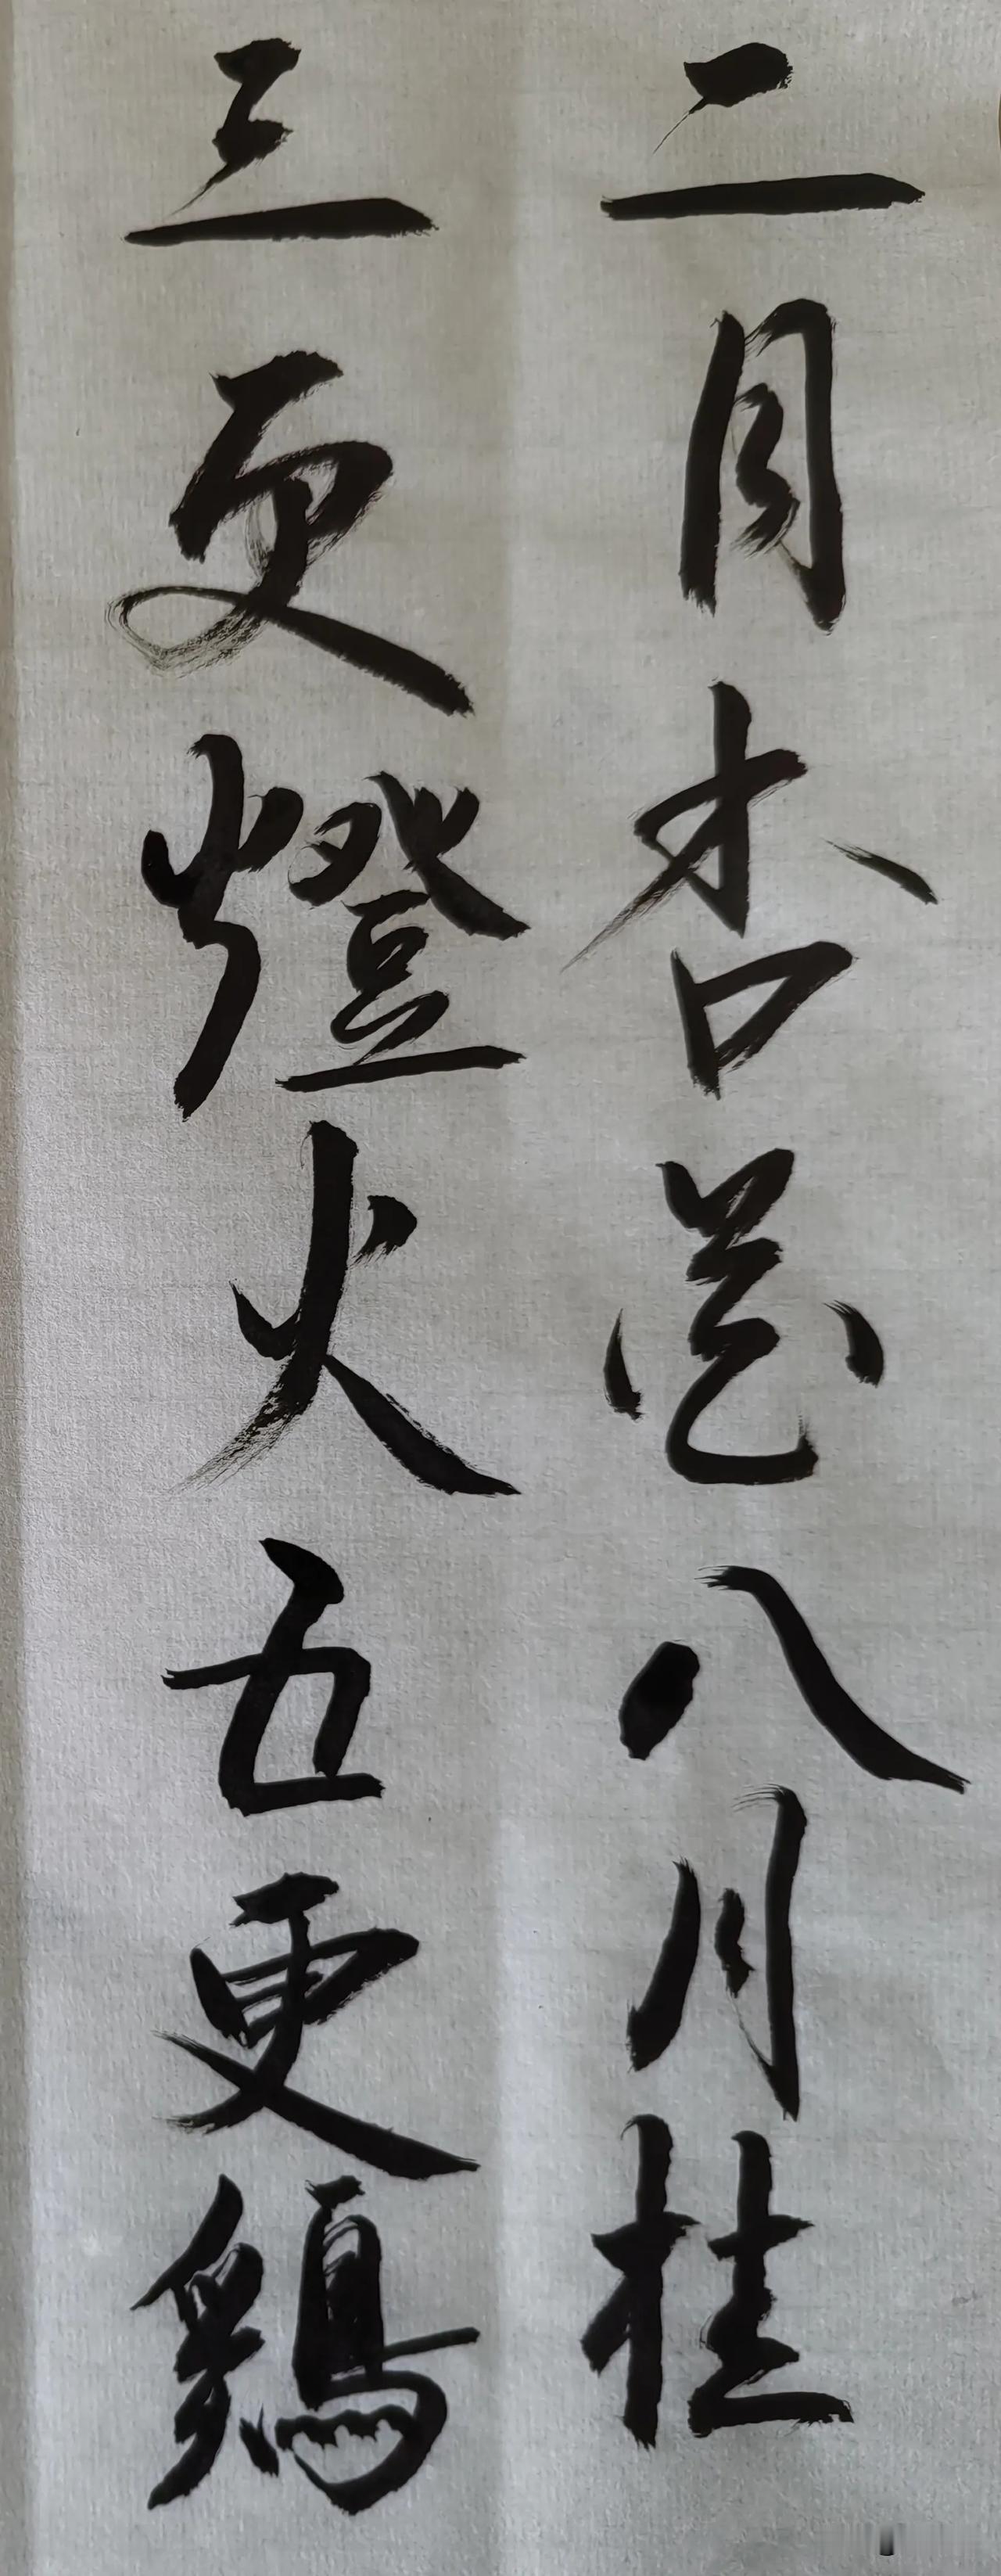 二月杏花八月桂
三更燈火五更鷄